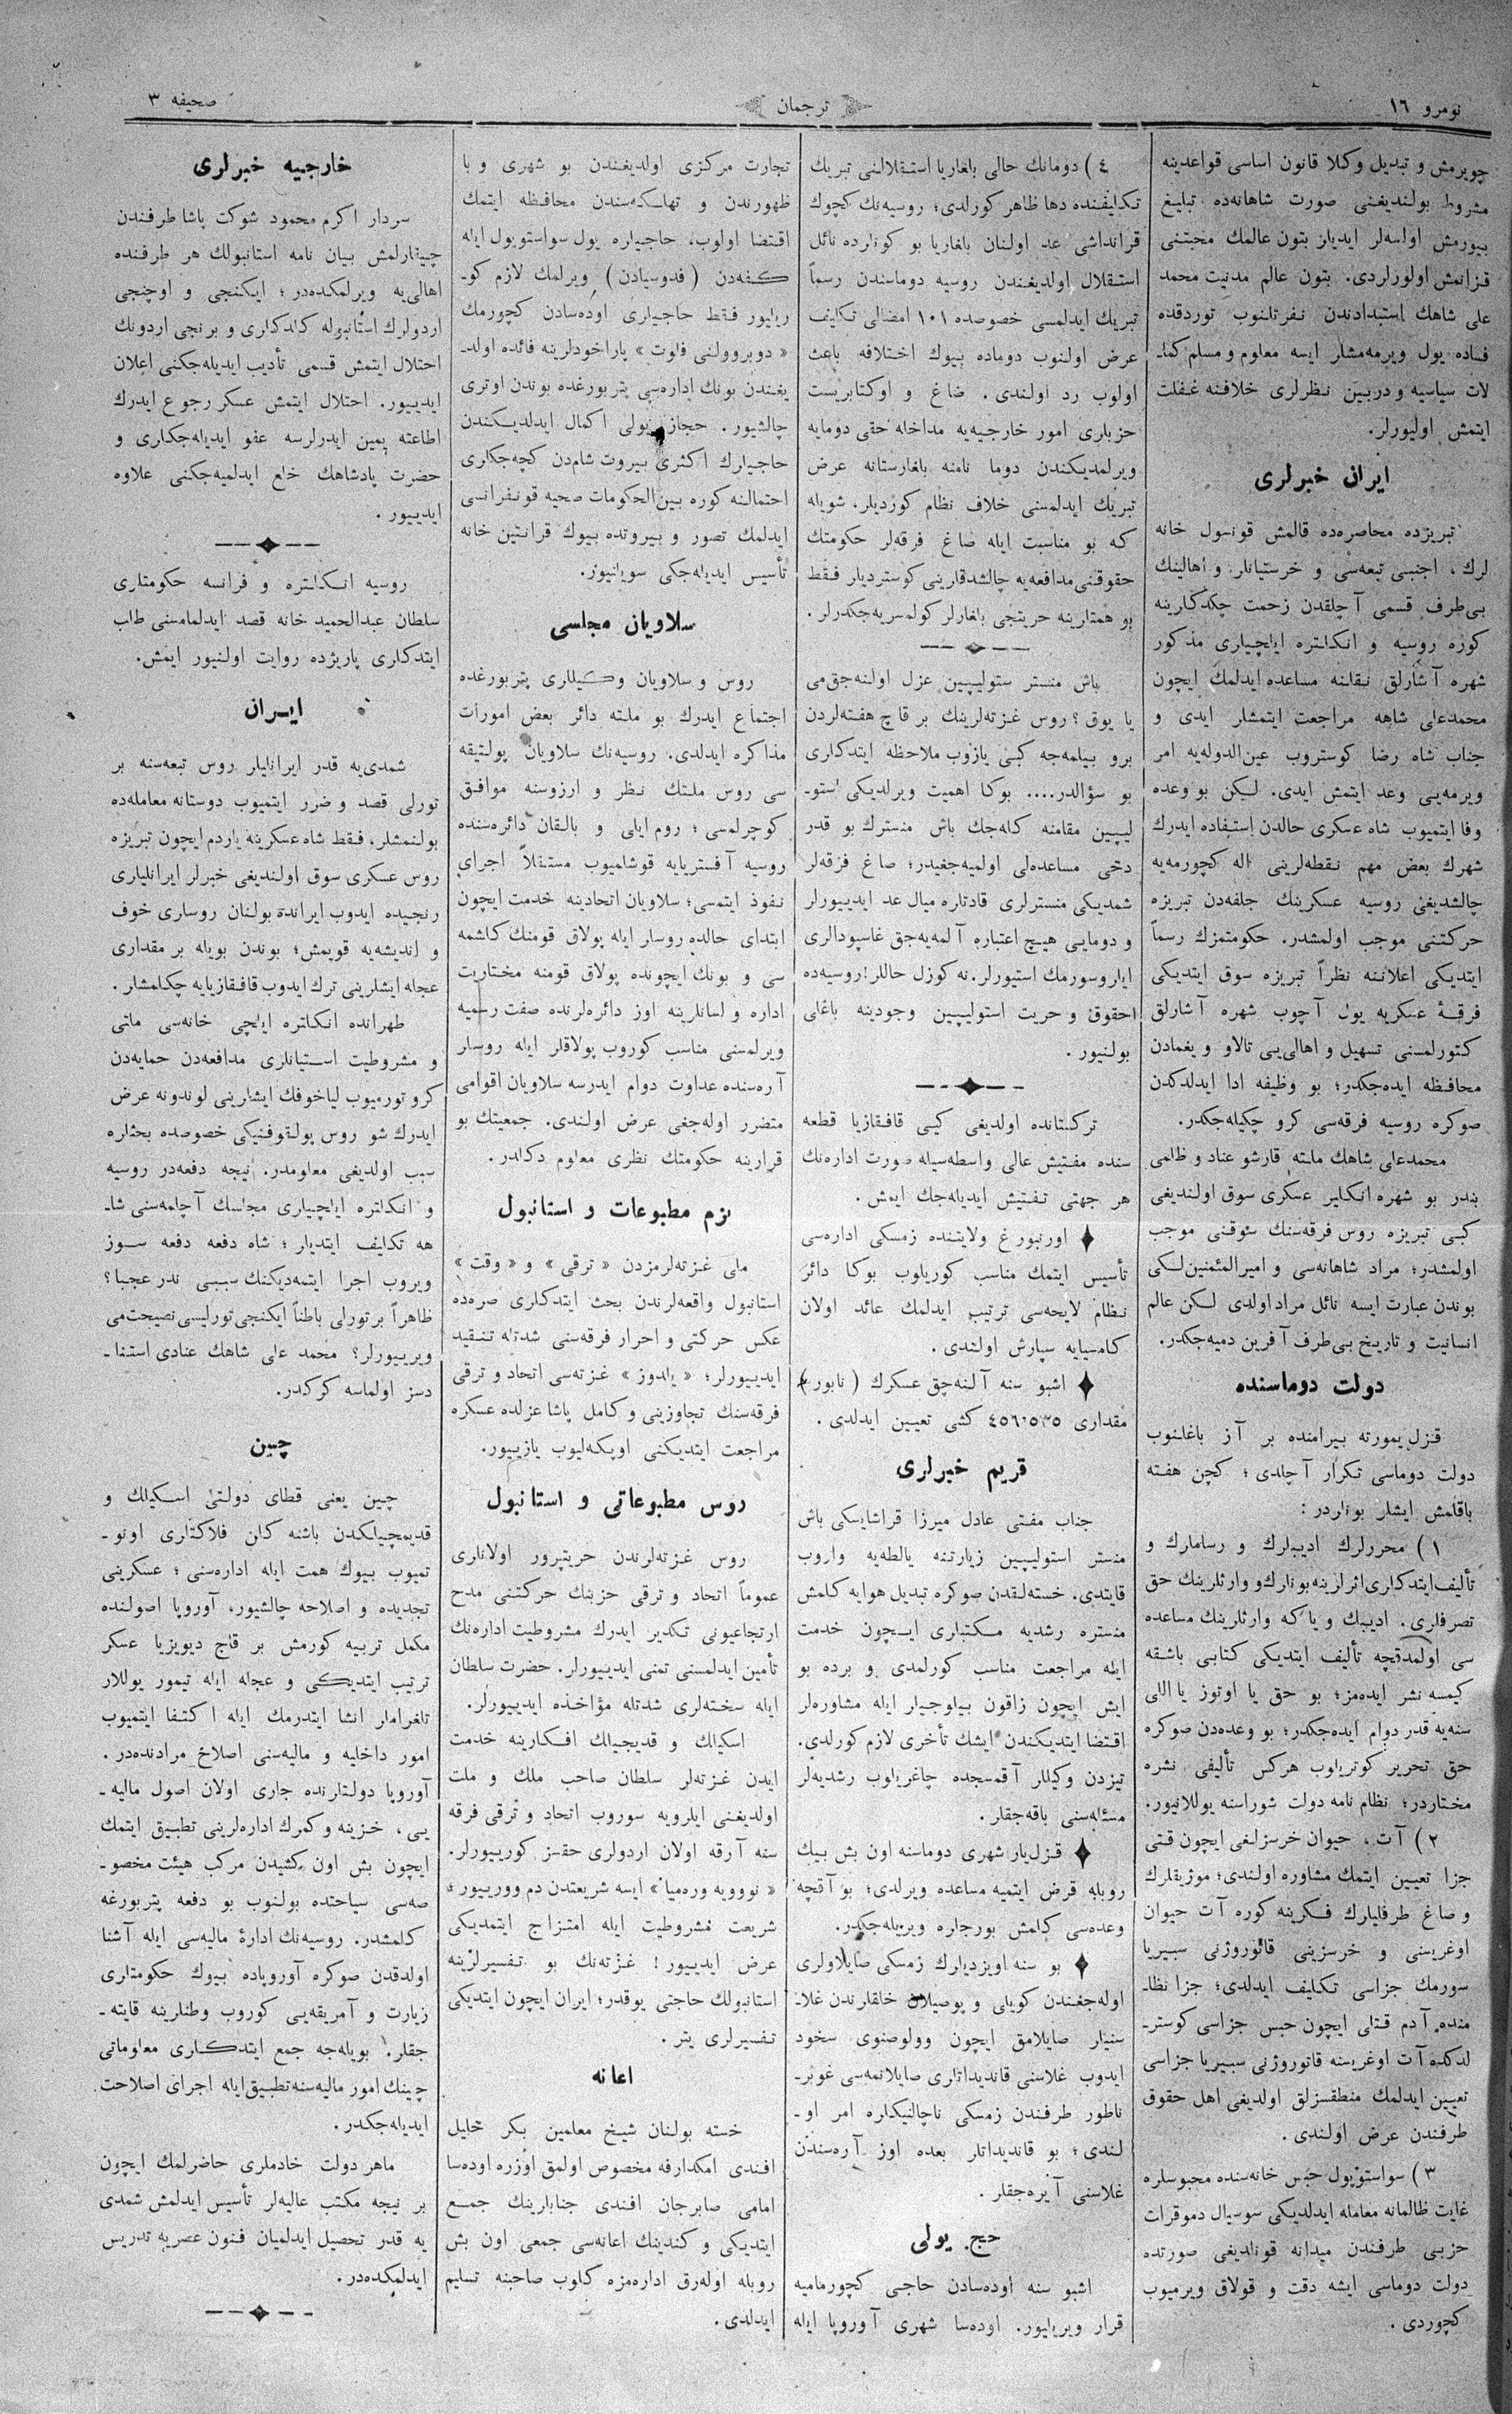 نومرو ١٦
ترجمان
صحیفه ٣
چویرمش و تبدیل وکلا قانون اساسی قواعدینه
مشروط بولندیغنی صورت شاهانه‌ده تبلیغ
بیورمش اولسه‌لر ایدیلر بتون عالمك محبتنی
قزانمش اولورلردی. بتون عالم مدنیت محمد
علی شاهك استبدادندن نفرتلنوب توردقده
فساده یول ویرمه‌مشلر ایسه معلوم و مسلم کما‌ـ
لات سیاسیه و دربین نظرلری خلافنه غفلت
ایتمش اولیورلر.
ایران خبرلری
تبریزده محاصره‌ده قالمش قونسول خانه
لرك، اجنبی تبعه‌سی و خرستیانلر و اهالینك
بی‌طرف قسمی آچلقدن زحمت چکدکلرینه
کوره روسیه و انکلتره ایلچیلری مذکور
شهره آشارلق نقلنه مساعده ایدلمك ایچون
محمدعلی شاهه مراجعت ایتمشلر ایدی و
جناب شاه رضا کوستروب عین‌الدوله‌یه امر
ویرمه‌یی وعد ایتمش ایدی. لیکن بو وعده
وفا ایتمیوب شاه عسکری حالدن استفاده ایدرك
شهرك بعض مهم نقطه‌لرینی اله کچورمه‌یه
چالشدیغی روسیه عسکرینك جلفه‌دن تبریزه
حرکتنی موجب اولمشدر. حکومتمزك رسماً
ایتدیکی اعلاننه نظراً تبریزه سوق ایتدیکی
فرقۀ عسکریه یول آچوب شهره آشارلق
کتورلمسنی تسهیل و اهالی‌یی تالاو و یغمادن
محافظه ایده‌جکدر؛ بو وظیفه ادا ایدلدکدن
صوکره روسیه فرقه‌سی کرو چکیله‌جکدر.
محمدعلی شاهك ملته قارشو عناد و ظلمی
بندر بو شهره انکلیز عسکری سوق اولندیغی
کبی تبریزه روس فرقه‌سنك سوقنی موجب
اولمشدر؛ مراد شاهانه‌سی و امیرالمئمنین‌لکی
بوندن عبارت ایسه نائل مراد اولدی لکن عالم
انسانیت و تاریخ بی‌طرف آفرین دمیه‌جکدر.
دولت دوماسنده
قزل یمورته بیرامنده بر آز باغلنوب
دولت دوماسی تکرار آچلدی؛ کچن هفته
باقلمش ایشلر بونلردر:
١) محررلرك ادیبلرك و رساملرك و
تألیف ایتدکلری اثرلرینه بونلرك و وارثلرینك حق
تصرفلری. ادیبك و یاکه وارثلرینك مساعده
سی اولمدقچه تألیف ایتدیکی کتابی باشقه
کیمسه نشر ایده‌مز؛ بو حق یا اوتوز یا اللی
سنه‌یه قدر دوام ایده‌جکدر؛ بو وعده‌دن صوکره
حق تحریر کوتریلوب هرکس تألیفی نشره
مختاردر؛ نظام نامه دولت شوراسنه یوللانیور.
٢) آت، حیوان خرسزلغی ایچون قتی
جزا تعیین ایتمك مشاوره اولندی؛ موژیقلرك
و صاغ طرفلیلرك فکرینه کوره آت حیوان
اوغریسنی و خرسزینی قاتوروژنی سبیریا
سورمك جزاسی تکلیف ایدلدی؛ جزا نظا‌ـ
منده آدم قتلی ایچون حبس جزاسی کوستر‌ـ
لدکده آت اوغریسنه قاتوروژنی سبیریا جزاسی
تعیین ایدلمك منطقسزلق اولدیغی اهل حقوق
طرفندن عرض اولندی.
٣) سواستوپول حبس خانه‌سنده محبوسلره
غایت ظالمانه معامله ایدلدیکی سوسیال دموقرات
حزبی طرفندن میدانه قونلدیغی صورتده
دولت دوماسی ایشه دقت و قولاق ویرمیوب
کچوردی.
٤) دومانك حالی بلغاریا استقلالنی تبریك
تکلیفنده دها ظاهر کورلدی؛ روسیه‌نك کچوك
قرانداشی عد اولنان بلغاریا بو کونلرده نائل
استقلال اولدیغندن روسیه دوماسندن رسماً
تبریك ایدلمسی خصوصده ١٠١ امضالی تکلیف
عرض اولنوب دوماده بیوك اختلافه باعث
اولوب رد اولندی. صاغ و اوکتابریست
حزبلری امور خارجیه‌یه مداخله حقی دومایه
ویرلمدیکندن دوما نامنه بلغارستانه عرض
تبریك ایدلمسنی خلاف نظام کوردیلر، شویله
که بو مناسبت ایله صاغ فرقه‌لر حکومتك
حقوقنی مدافعه‌یه چالشدقلرینی کوستردیلر فقط
بو همتلرینه حریتجی بلغارلر کولمسریه‌جکدرلر.
باش منستر ستولیپین عزل اولنه‌جق‌می
یا یوق؟ روس غزته‌لرینك بر قاچ هفته‌لردن
برو بیلمه‌جه کبی یازوب ملاحظه ایتدکلری
بو سؤالدر.... بوکا اهمیت ویرلدیکی استو‌ـ
لیپین مقامنه کله‌جك باش منسترك بو قدر
دخی مساعده‌لی اولمیه‌جغیدر؛ صاغ فرقه‌لر
شمدیکی منسترلری قادتلره میال عد ایدییورلر
و دومایی هیچ اعتباره آلمه‌یه‌جق غاسپودالری
ایلروسورمك استیورلر. نه کوزل حاللر! روسیه‌ده
حقوق و حریت استولیپین وجودینه باغلی
بولنیور.
ترکستانده اولدیغی کبی قافقازیا قطعه
سنده مفتیش عالی واسطه‌سیله صورت اداره‌نك
هر جهتی تفتیش ایدیله‌جك ایمش.
اورنبورغ ولایتنده زمسکی اداره‌سی
تأسیس ایتمك مناسب کوریلوب بوکا دائر
نظام لایحه‌سی ترتیب ایدلمك عائد اولان
کامسیایه سپارش اولندی.
اشبو سنه آلنه‌جق عسکرك (نابور)
مقداری ٤٥٦٬٥٣٥ کشی تعیین ایدلدی.
قریم خبرلری
جناب مفتی عادل میرزا قراشایسکی باش
منستر استولیپین زیارتنه یالطه‌یه واروب
قایتدی. خسته‌لقدن صوکره تبدیل هوایه کلمش
منستره رشدیه مکتبلری ایچون خدمت
ایله مراجعت مناسب کورلمدی و برده بو
ایش ایچون زاقون بیلوجیلر ایله مشاوره‌لر
اقتضا ایتدیکندن ایشك تأخری لازم کورلدی.
تیزدن وکیللر آقمسجده چاغریلوب رشدیه‌لر
مسئله‌سنی باقه‌جقلر.
قزل‌یار شهری دوماسنه اون بش بیك
روبله قرض ایتمیه مساعده ویرلدی؛ بو آقچه
وعده‌سی کلمش بورجلره ویریله‌جکدر.
بو سنه اویزدیلرك زمسکی صایلاولری
اوله‌جغندن کویلی و پوصیلان خلقلرندن غلا‌ـ
سنیلر صایلامق ایچون وولوصنوی سخود
ایدوب غلاسنی قاندیداتلری صایلانمه‌سی غوبر‌ـ
ناطور طرفندن زمسکی ناچالنیکلره امر او‌ـ
لندی؛ بو قاندیداتلر بعده اوز آره‌سندن
غلاسنی آیره‌جقلر.
حج یولی
اشبو سنه اوده‌سادن حاجی کچورمامیه
قرار ویریلیور. اوده‌سا شهری آوروپا ایله
تجارت مرکزی اولدیغندن بو شهری وبا
ظهورندن و تهلکه‌سندن محافظه ایتمك
اقتضا اولوب، حاجیلره یول سواستوپول ایله
کفه‌دن (فدوسیادن) ویرلمك لازم کو‌ـ
ریلیور فقط حاجیلری اوده‌سادن کچورمك
«دوبروولنی فلوت» پاراخودلرینه فائده اولد‌ـ
یغندن بونك اداره‌سی پتربورغده بوندن اوتری
چالشیور. حجاز یولی اکمال ایدلدیکندن
حاجیلرك اکثری بیروت شامدن کچه‌جکلری
احتمالنه کوره بین‌الحکومات صحیه قونفرانسی
ایدلمك تصور و بیروتده بیوك قرانتین خانه
تأسیس ایدیله‌جکی سویلنیور.
سلاویان مجلسی
روس و سلاویان وکیللری پتربورغده
اجتماع ایدرك بو ملته دائر بعض امورات
مذاکره ایدلدی. روسیه‌نك سلاویان پولتیقه
سی روس ملتك نظر و ارزوسنه موافق
کوچرلمسی؛ روم ایلی و بالقان دائره‌سنده
روسیه آفستریایه قوشلمیوب مستقلاً اجرای
نفوذ ایتمسی؛ سلاویان اتحادینه خدمت ایچون
ابتدای حالده روسلر ایله پولاق قومنك کلشمه
سی و بونك ایچونده پولاق قومنه مختاریت
اداره و لسانلرینه اوز دائره‌لرنده صفت رسمیه
ویرلمسنی مناسب کوروب پولاقلر ایله روسلر
آره‌سنده عداوت دوام ایدرسه سلاویان اقوامی
متضرر اوله‌جغی عرض اولندی. جمعیتك بو
قرارینه حکومتك نظری معلوم دکلدر.
بزم مطبوعات و استانبول
ملی غزته‌لرمزدن «ترقی» و «وقت»
استانبول واقعه‌لرندن بحث ایتدکلری صره‌ده
عکس حرکتی و احرار فرقه‌سنی شدتله تنقید
ایدییورلر؛ «یلدوز» غزته‌سی اتحاد و ترقی
فرقه‌سنك تجاوزینی و کامل پاشا عزلده عسکره
مراجعت ایتدیکنی اوپکه‌لیوب یازییور.
روس مطبوعاتی و استانبول
روس غزته‌لرندن حریتپرور اولانلری
عموماً اتحاد و ترقی حزبنك حرکتنی مدح
ارتجاعیونی تکدیر ایدرك مشروطیت اداره‌نك
تأمین ایدلمسنی تمنی ایدییورلر. حضرت سلطان
ایله سخته‌لری شدتله مؤاخذه ایدییورلر.
اسکیلك و قدیجیلك افکارینه خدمت
ایدن غزته‌لر سلطان صاحب ملك و ملت
اولدیغنی ایلرویه سوروب اتحاد و ترقی فرقه
سنه آرقه اولان اردولری حقسز کورییورلر.
«نووویه وره‌میا» ایسه شریعتدن دم وورییور.
شریعت مشروطیت ایله امتزاج ایتمدیکی
عرض ایدییور! غزته‌نك بو تفسیرلرینه
استانبولك حاجتی یوقدر؛ ایران ایچون ایتدیکی
تفسیرلری یتر.
اعانه
خسته بولنان شیخ معلمین بکر خلیل
افندی امکدارفه مخصوص اولمق اوزره اوده‌سا
امامی صابرجان افندی جنابلرینك جمع
ایتدیکی و کندینك اعانه‌سی جمعی اون بش
روبله اوله‌رق اداره‌مزه کلوب صاحبنه تسلیم
ایدلدی.
خارجیه خبرلری
سردار اکرم محمود شوکت پاشا طرفندن
چیقارلمش بیان نامه استانبولك هر طرفنده
اهالی‌یه ویرلمکده‌در؛ ایکنجی و اوچنجی
اردولرك استانبوله کلدکلری و برنجی اردونك
احتلال ایتمش قسمی تأدیب ایدیله‌جکنی اعلان
ایدییور. احتلال ایتمش عسکر رجوع ایدرك
اطاعته یمین ایدرلرسه عفو ایدیله‌جکلری و
حضرت پادشاهك خلع ایدلمیه‌جکنی علاوه
ایدییور.
روسیه انکلتره و فرانسه حکومتلری
سلطان عبدالحمید خانه قصد ایدلمامسنی طلب
ایتدکلری پاریژده روایت اولنیور ایمش.
ایران
شمدی‌یه قدر ایرانلیلر روس تبعه‌سنه بر
تورلی قصد و ضرر ایتمیوب دوستانه معامله‌ده
بولنمشلر، فقط شاه عسکرینه یاردم ایچون تبریزه
روس عسکری سوق اولندیغی خبرلر ایرانلیلری
رنجیده ایدوب ایرانده بولنان روسلری خوف
و اندیشه‌یه قویمش؛ بوندن بویله بر مقداری
عجله ایشلرینی ترك ایدوب قافقازیایه چکلمشلر.
طهرانده انکلتره ایلچی خانه‌سی ملتی
و مشروطیت استیانلری مدافعه‌دن حمایه‌دن
کرو تورمیوب لیاخوفك ایشلرینی لوندونه عرض
ایدرك شو روس پولقوفنیکی خصوصده بحثلره
سبب اولدیغی معلومدر. نیجه دفعه‌در روسیه
و انکلتره ایلچیلری مجلسك آچلمه‌سنی شا‌ـ
هه تکلیف ایتدیلر؛ شاه دفعه دفعه سوز
ویروب اجرا ایتمه‌دیکنك سببی ندر عجبا؟
ظاهراً برتورلی باطناً ایکنجی تورلیسی نصیحت‌می
ویرییورلر؟ محمد علی شاهك عنادی استنا‌ـ
دسز اولماسه کرکدر.
چین
چین یعنی قطای دولتی اسکیلك و
قدیمچیلکدن باشنه کلن فلاکتلری اونو‌ـ
تمیوب بیوك همت ایله اداره‌سنی؛ عسکرینی
تجدیده و اصلاحه چالشیور، آوروپا اصولنده
مکمل تربیه کورمش بر قاچ دیویزیا عسکر
ترتیب ایتدیکی و عجله ایله تیمور یوللار
تلغرافلر انشا ایتدرمك ایله اکتفا ایتمیوب
امور داخلیه و مالیه‌سنی اصلاح مرادنده‌در.
آوروپا دولتلرنده جاری اولان اصول مالیه‌ـ
یی، خزینه و کمرك اداره‌لرینی تطبیق ایتمك
ایچون بش اون کشیدن مرکب هیئت مخصو‌ـ
صه‌سی سیاحتده بولنوب بو دفعه پتربورغه
کلمشدر. روسیه‌نك ادارۀ مالیه‌سی ایله آشنا
اولدقدن صوکره آوروپاده بیوك حکومتلری
زیارت و آمریقه‌یی کوروب وطنلرینه قایته‌ـ
جقلر. بویله‌جه جمع ایتدکلری معلوماتی
چینك امور مالیه‌سنه تطبیق ایله اجرای اصلاحت
ایدیله‌جکدر.
ماهر دولت خادملری حاضرلمك ایچون
بر نیجه مکتب عالیه‌لر تأسیس ایدلمش شمدی
یه قدر تحصیل ایدلمیان فنون عصریه تدریس
ایدلمکده‌در.